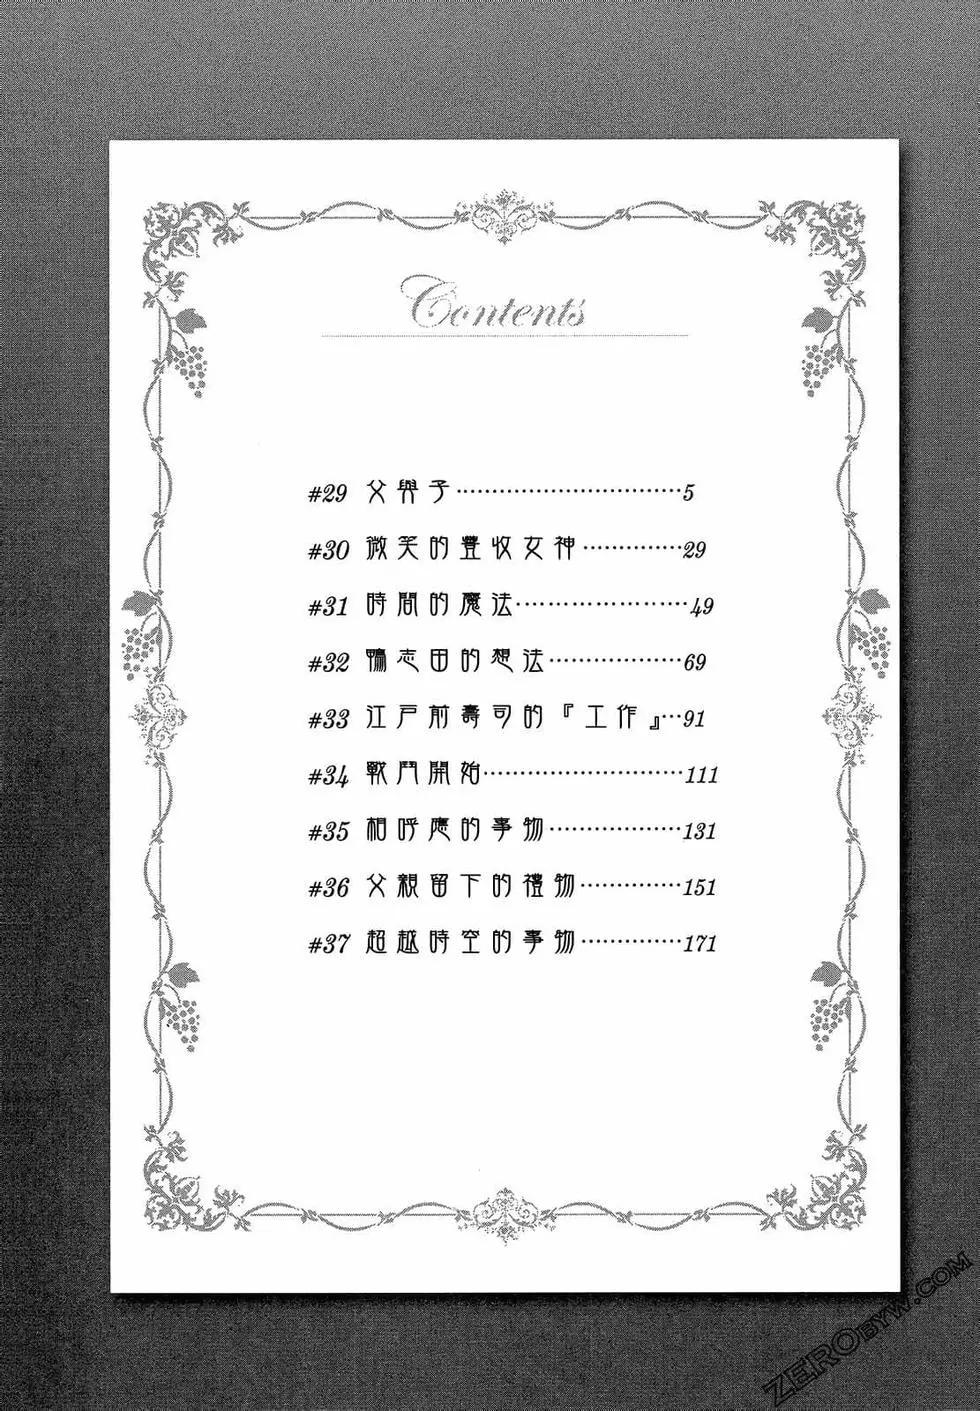 Contents
#29 父與子……………………………5
#30 微笑的豐收女神……………29
#31 時間的魔法……………………49
#32 鴨志田的想法…………………69
#33 江戶前壽司的『工作』…91
#34 戰鬥開始…………………………111
#35 相呼應的事物…………………131
#36 父親留下的禮物……………151
#37 超越時空的事物……………171
ZEROBYW.COM